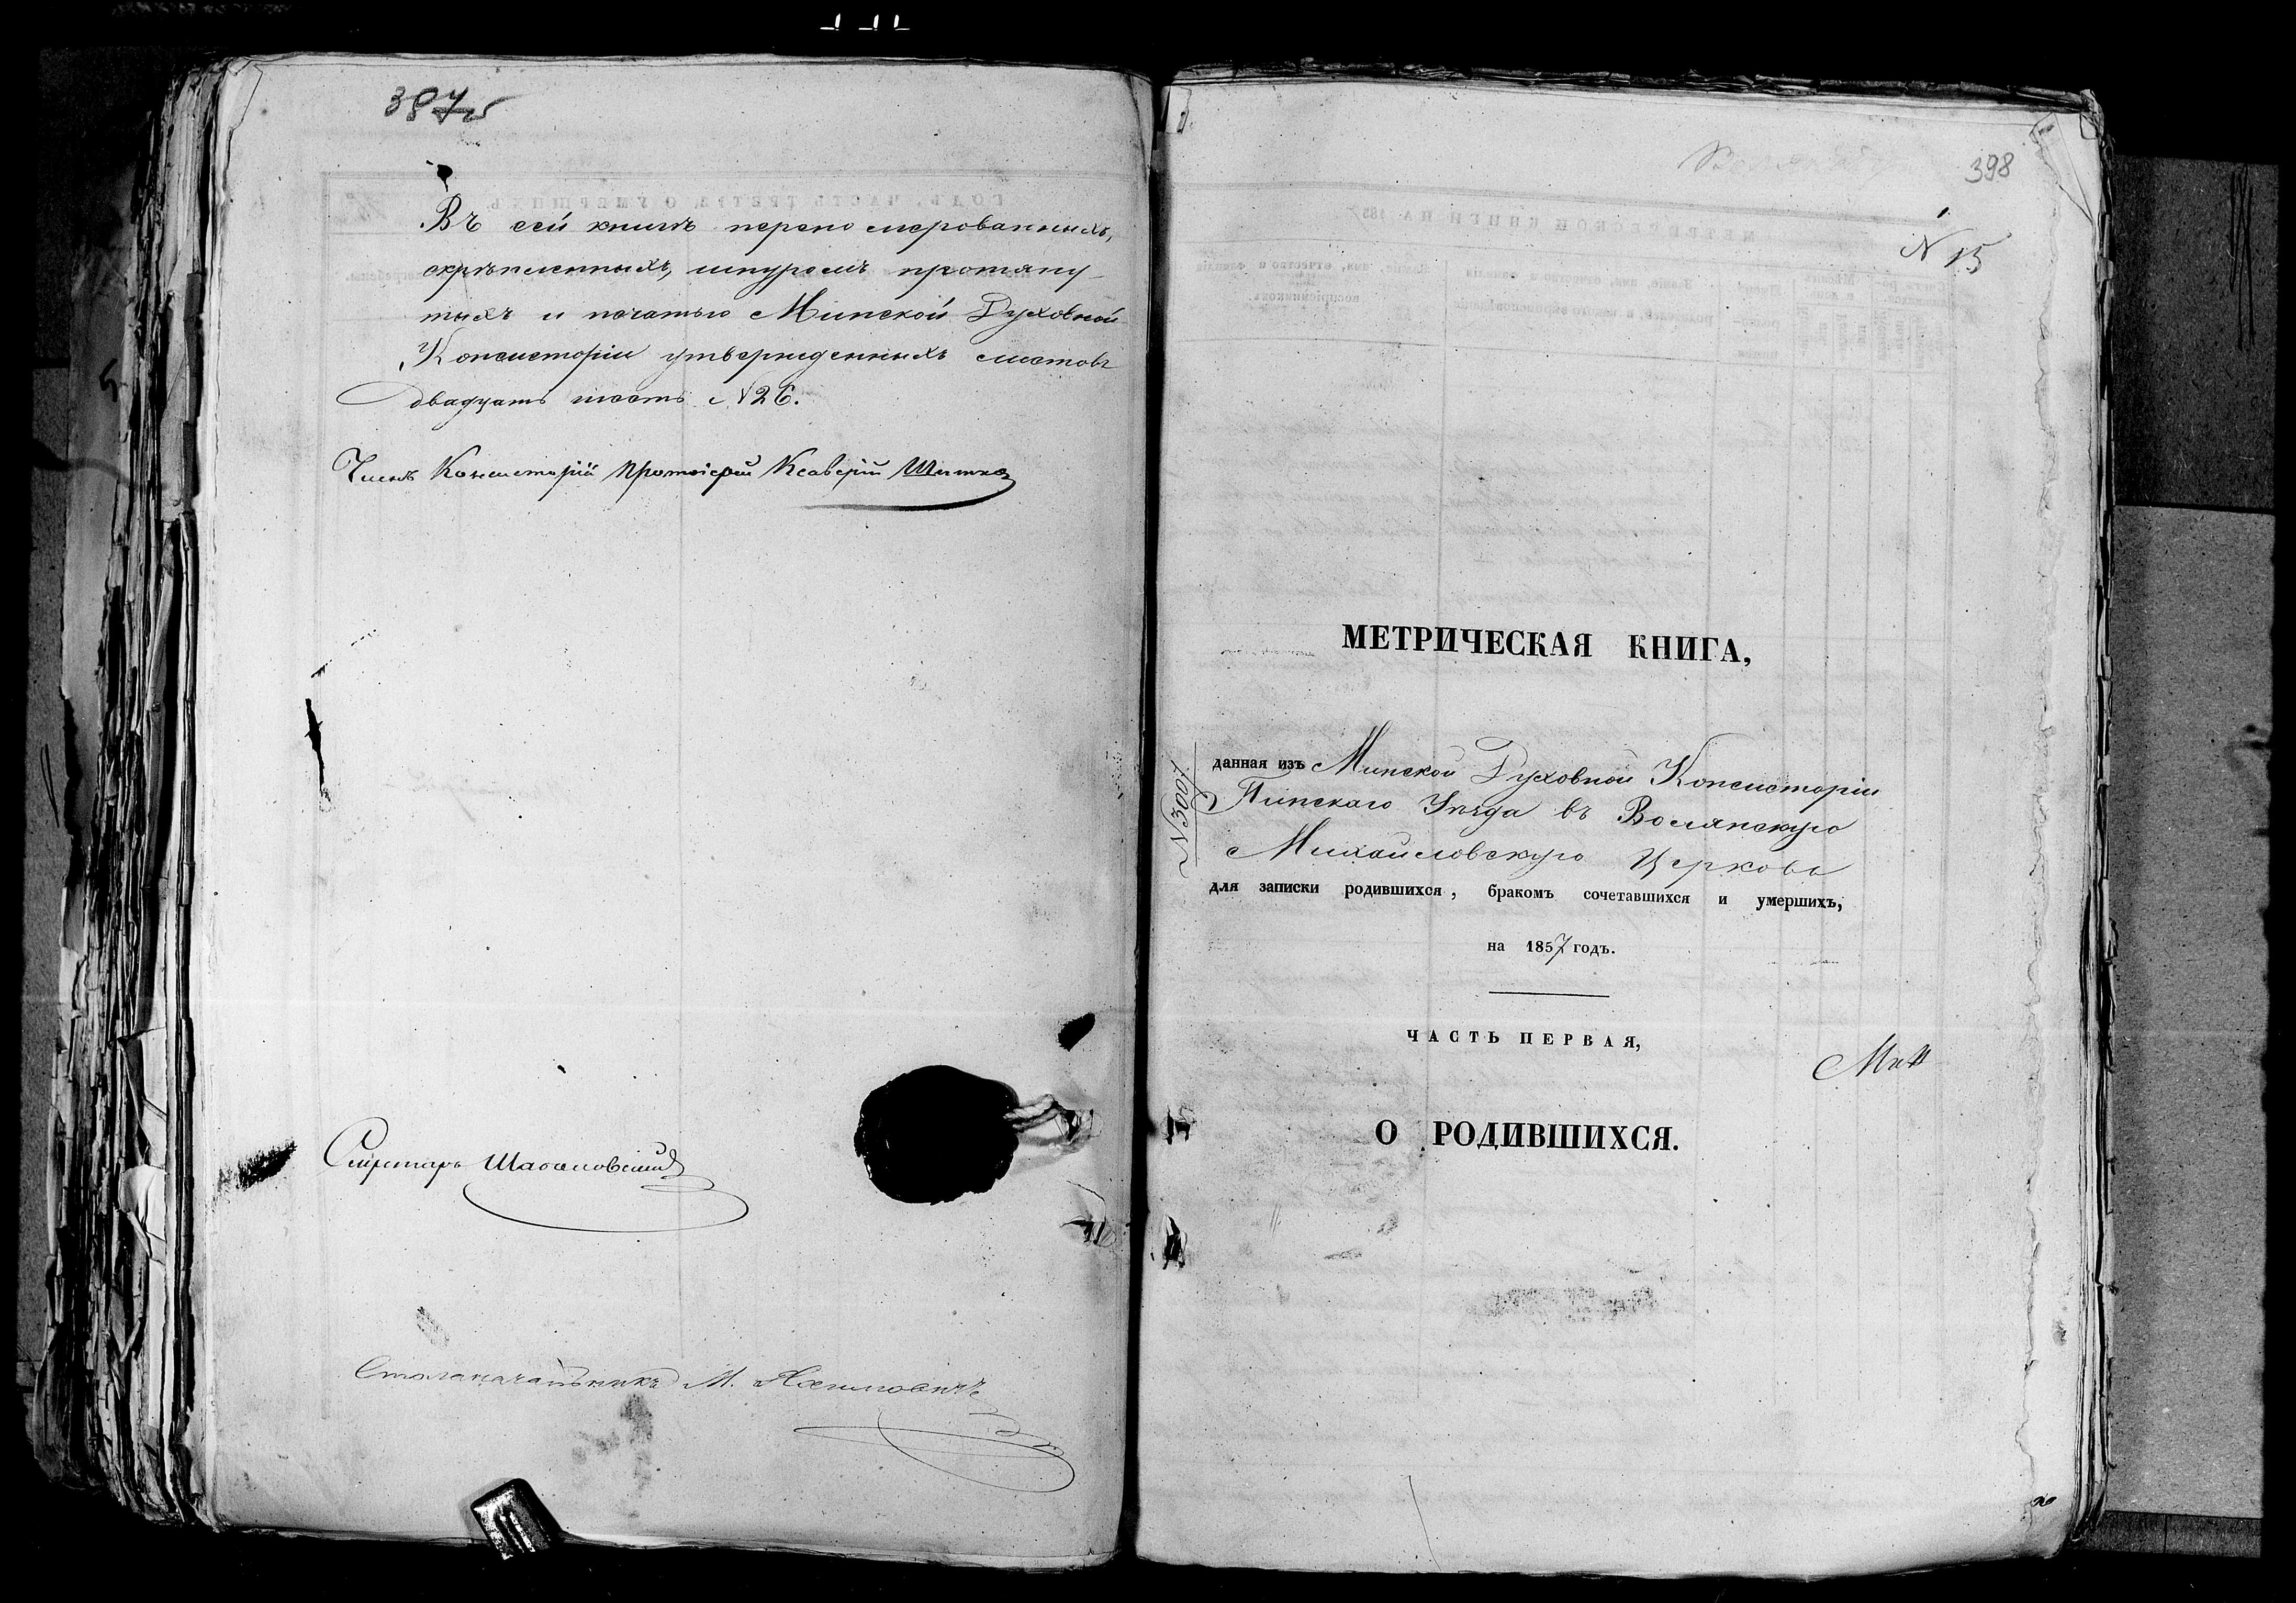 397
Въ сей книгѣ перено мерованныхъ,
скрѣпленныхъ, шнуромъ протяну
тыхъ и печатью Минской Духовной
Консисторіи утвержденныхъ листовъ
двадцать шесть N 26.
Членъ Консисторіи Протоіерей Ксаверій
Секретарь
Столоначальникъ М.
398
N 15
МЕТРИЧЕСКАЯ КНИГА,
данная изъ Минской Духовной Консисторіи
Пинскаго Уѣзда въ Волянскую
Михайловскую Церковь
N 3007
для записки родившихся, бракомъ сочетавшихся и умершихъ,
на 1857 годъ.
ЧАСТЬ ПЕРВАЯ,
О РОДИВШИХСЯ.